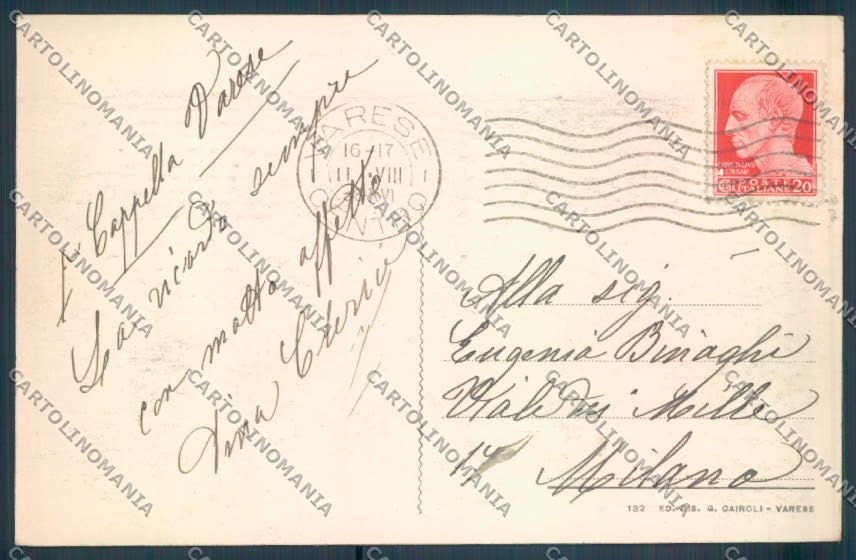 I Cappella Varese
La ricordo sempre
con molto affetto
Tina Clerici
VARESE
16-17
11 VIII
XVI
CAIVS IVLIVS
CAESAR
POSTE
ITALIANE 20
Alla sig.
Eugenia Binaghi
Viale dei Mille
17
Milano
132 ED. G. CAIROLI - VARESE
CARTOLINOMANIA